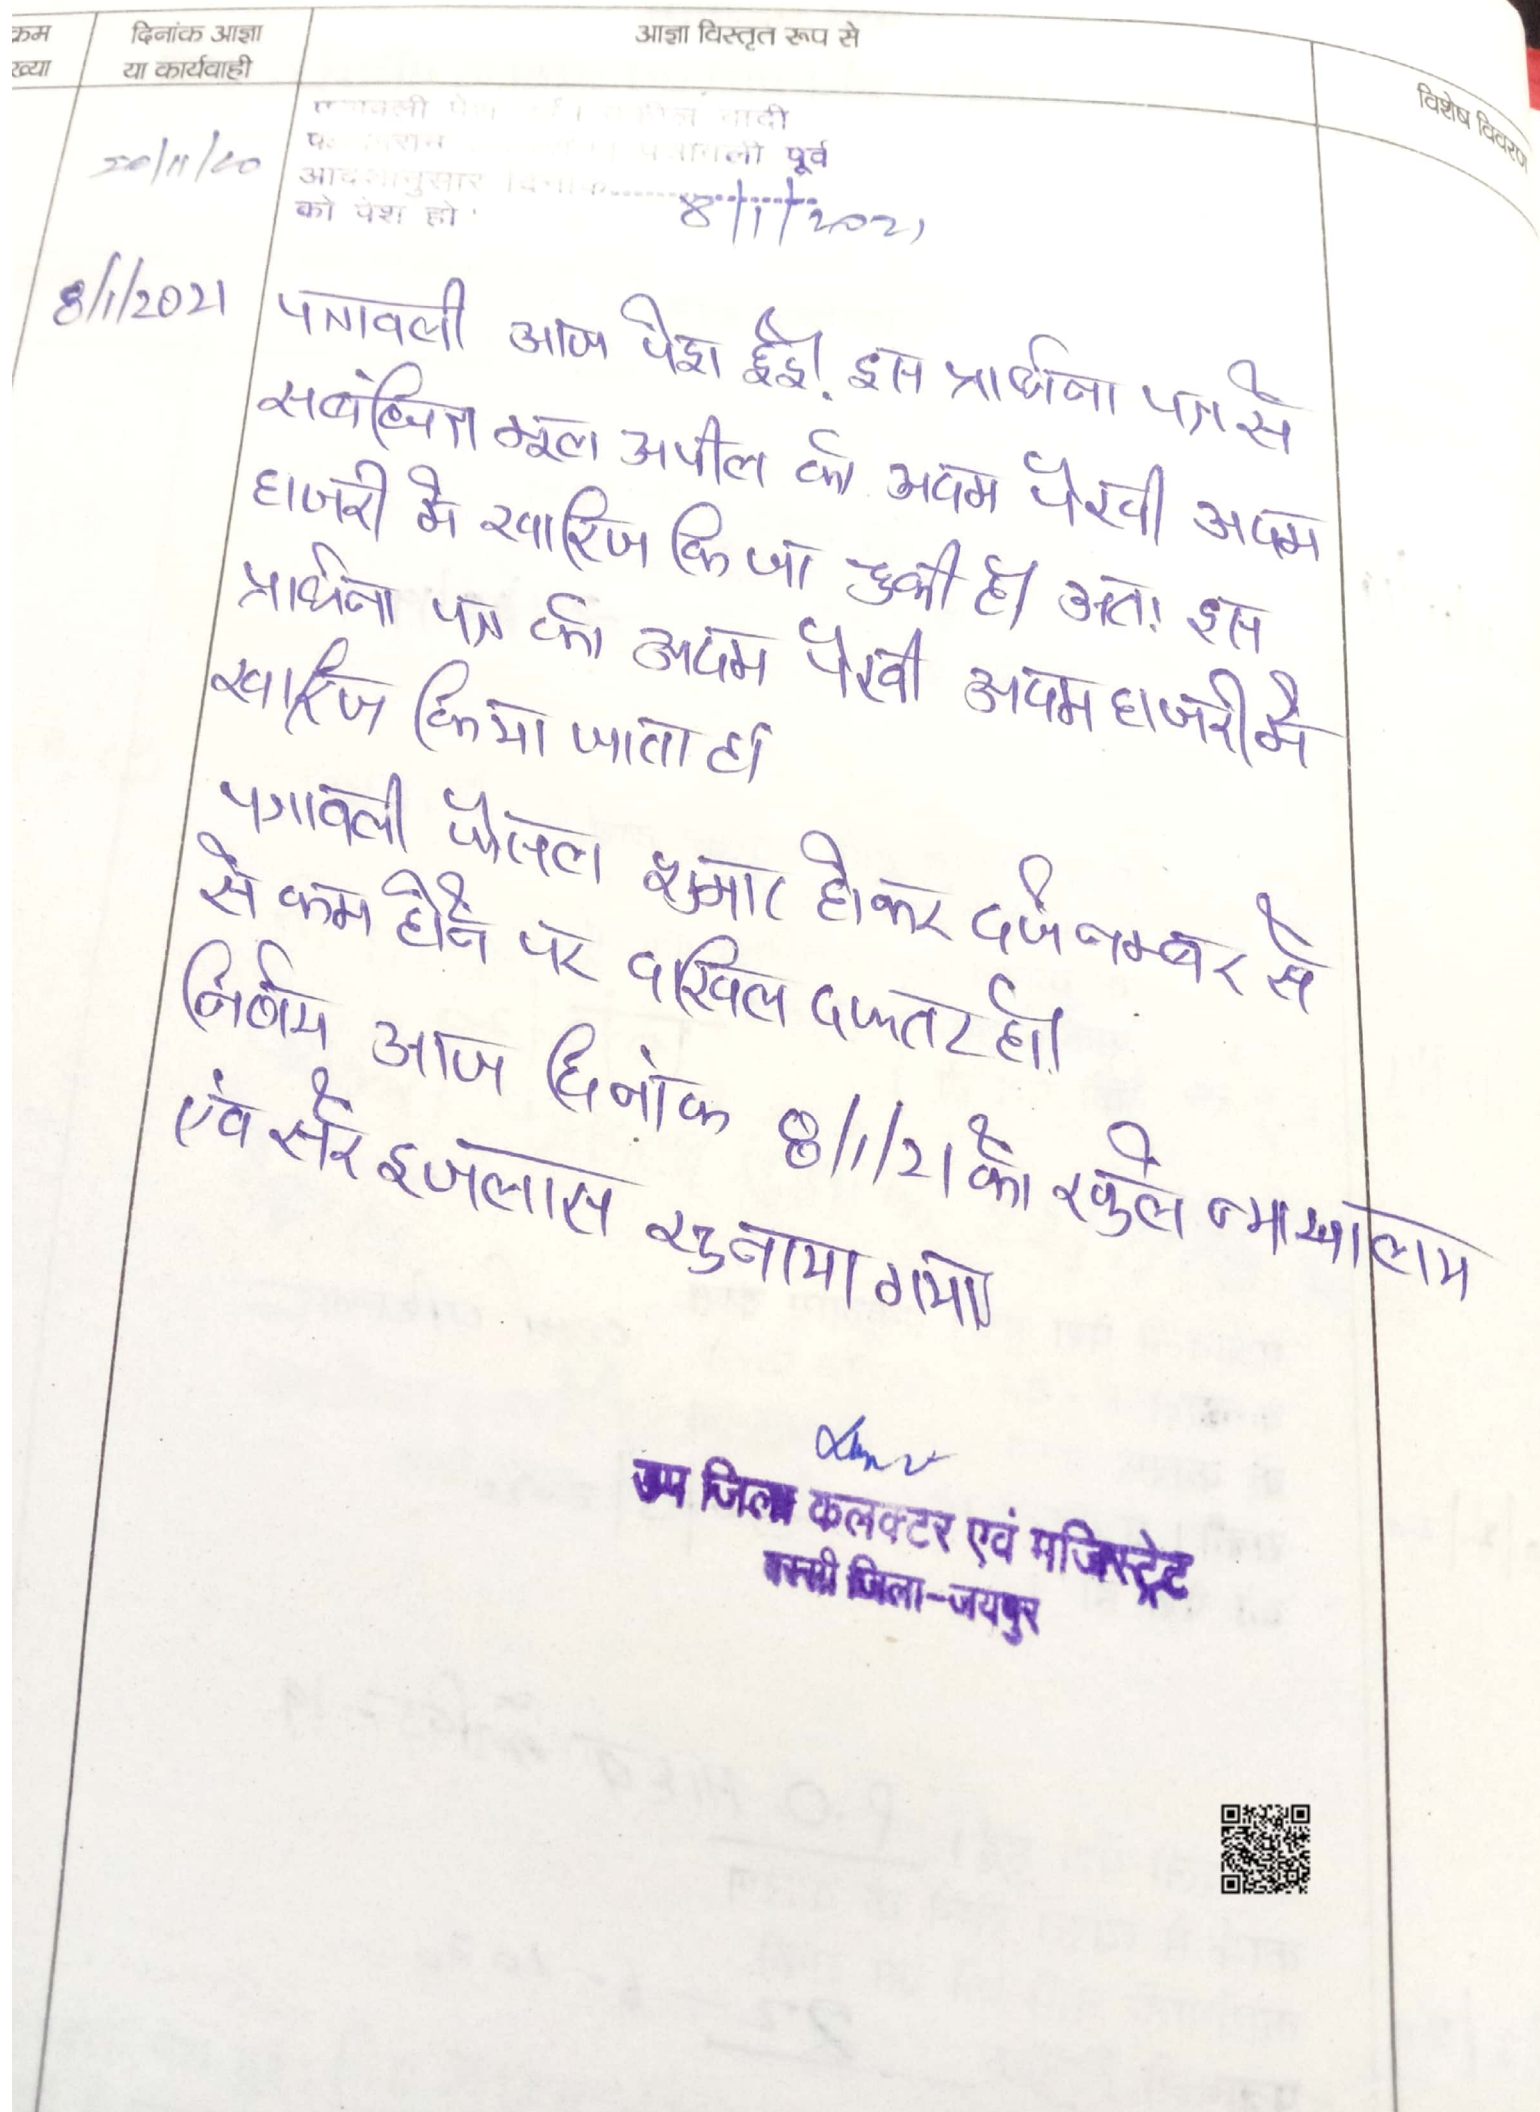 क्रम
ख्या
दिनांक आज्ञा
या कार्यवाही
आज्ञा विस्तृत रूप से
विशेष विवरण
पत्रावली पेश वादी
20/11/20
पत्रावली पूर्व
आदेशानुसार दिनांक 8/1/2021
को पेश हो
8/1/2021
पत्रावली आज पेश हुई। इस प्रार्थना पत्र से
सबंधित मूल अपील को अदम पैरवी अदम
हाजरी मे खारिज कि जा चुकी है। अतः इस
प्रार्थना पत्र को अदम पैरवी अदम हाजरी मे
खारिज किया जाता है।
पत्रावली फैसला शुमार होकर दर्ज नम्बर से
से कम होने पर दाखिल दफ्तर हो।
निर्णय आज दिनांक 8/1/21 को खुले न्यायालय
एंव सरे इजलास सुनाया गया।
उप जिला कलक्टर एवं मजिस्ट्रेट
बस्सी जिला-जयपुर